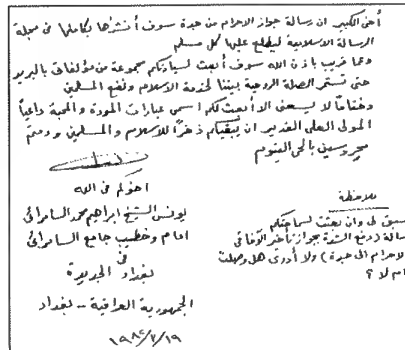 أخي الكبير ان رسالة جواز الاحرام من جدة سوف أنشرها بكاملها في مجلة
الرسالة الاسلامية ليطلع عليها كل مسلم
وعما قريب باذن الله سوف أبعث لسيادتكم مجموعة من مؤلفاتي بالبريد
حتى تستمر الصلة الروحية بيننا لخدمة الاسلام ونفع المسلمين
وختاماً لا يسعني الا أبعث لكم اسمى عبارات المودة والمحبة داعياً
المولى العلي القدير ان يبقيكم ذخراً للاسلام والمسلمين ودمتم
محروسين بالحي القيوم
اخوكم في الله
يونس الشيخ ابراهيم محمد السامرائي
امام وخطيب جامع السامرائي
في
بغداد الجديدة
الجمهورية العراقية - بغداد
١٩٨٢/٢/١٩
ملاحظة
سبق لي وان بعثت لسماحتكم
رسالة (دفع الشدة بجواز تأخير الآفاقي
الاحرام الى جدة) ولا أدري هل وصلت
ام لا ؟